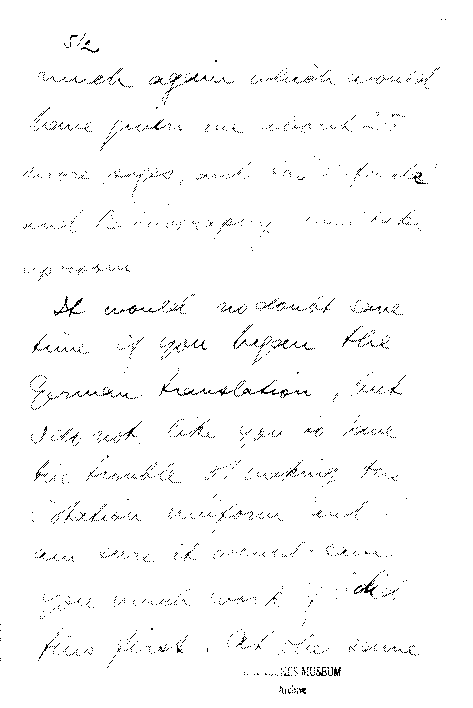 5/2
much again which would
have given me about 25
more pages, and
and Bibliography will take
up room
It would no doubt save
time if you began the
German translation, but
I do not like you to have
the trouble of making the
notation uniform and
am sure it would save
you much work if I did
this first. At the same
MUSEUM
Archive